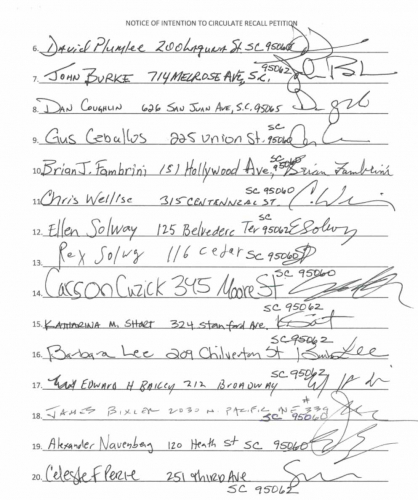 NOTICE OF INTENTION TO CIRCULATE RECALL PETITION
6. David Plumlee 200 Laguna St SC 95060
7. JOHN BURKE 714 MELROSE AVE, S.C. 95062
8. DAN COUGHLIN 626 SAN JUAN AVE, S.C. 95065
9. Gus Ceballos 225 Union St. SC 95060
10. Brian J. Fambrini 151 Hollywood Ave, SC 95060 Brian Fambrini
11. Chris Wellise 315 CENTENNIAL ST. SC 95060
12. Ellen Solway 125 Belvedere Ter SC 95062 E Solway
13. Rex Solvg 116 Cedar SC 95060
14. Carson Cuzick 345 Moore St SC 95060
15. KATHARINA M. SHORT 324 Stanford Ave. SC 95062
16. Barbara Lee 209 Chilverton St SC 95062 Lee
17. EDWARD H BAILEY 212 BROADWAY SC 95062
18. JAMES BIXLER 2030 N. PACIFIC AVE # 339 SC 95060
19. Alexander Navenberg 120 Heath St SC 95060
20. Celeste F 251 Third Ave SC 95062